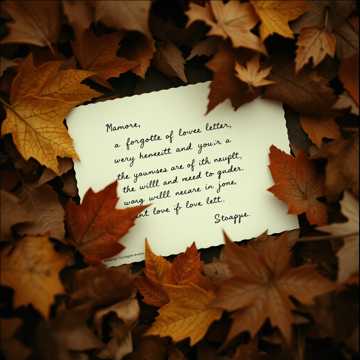 Mamore,
a forgotte of lovee letter,
wery keneeitt and you:r a
the yaumses are of ith neuplt,
the willl and meed to gnder.
warg willl necare in jone,
nt love if love lett.
Stoappe.